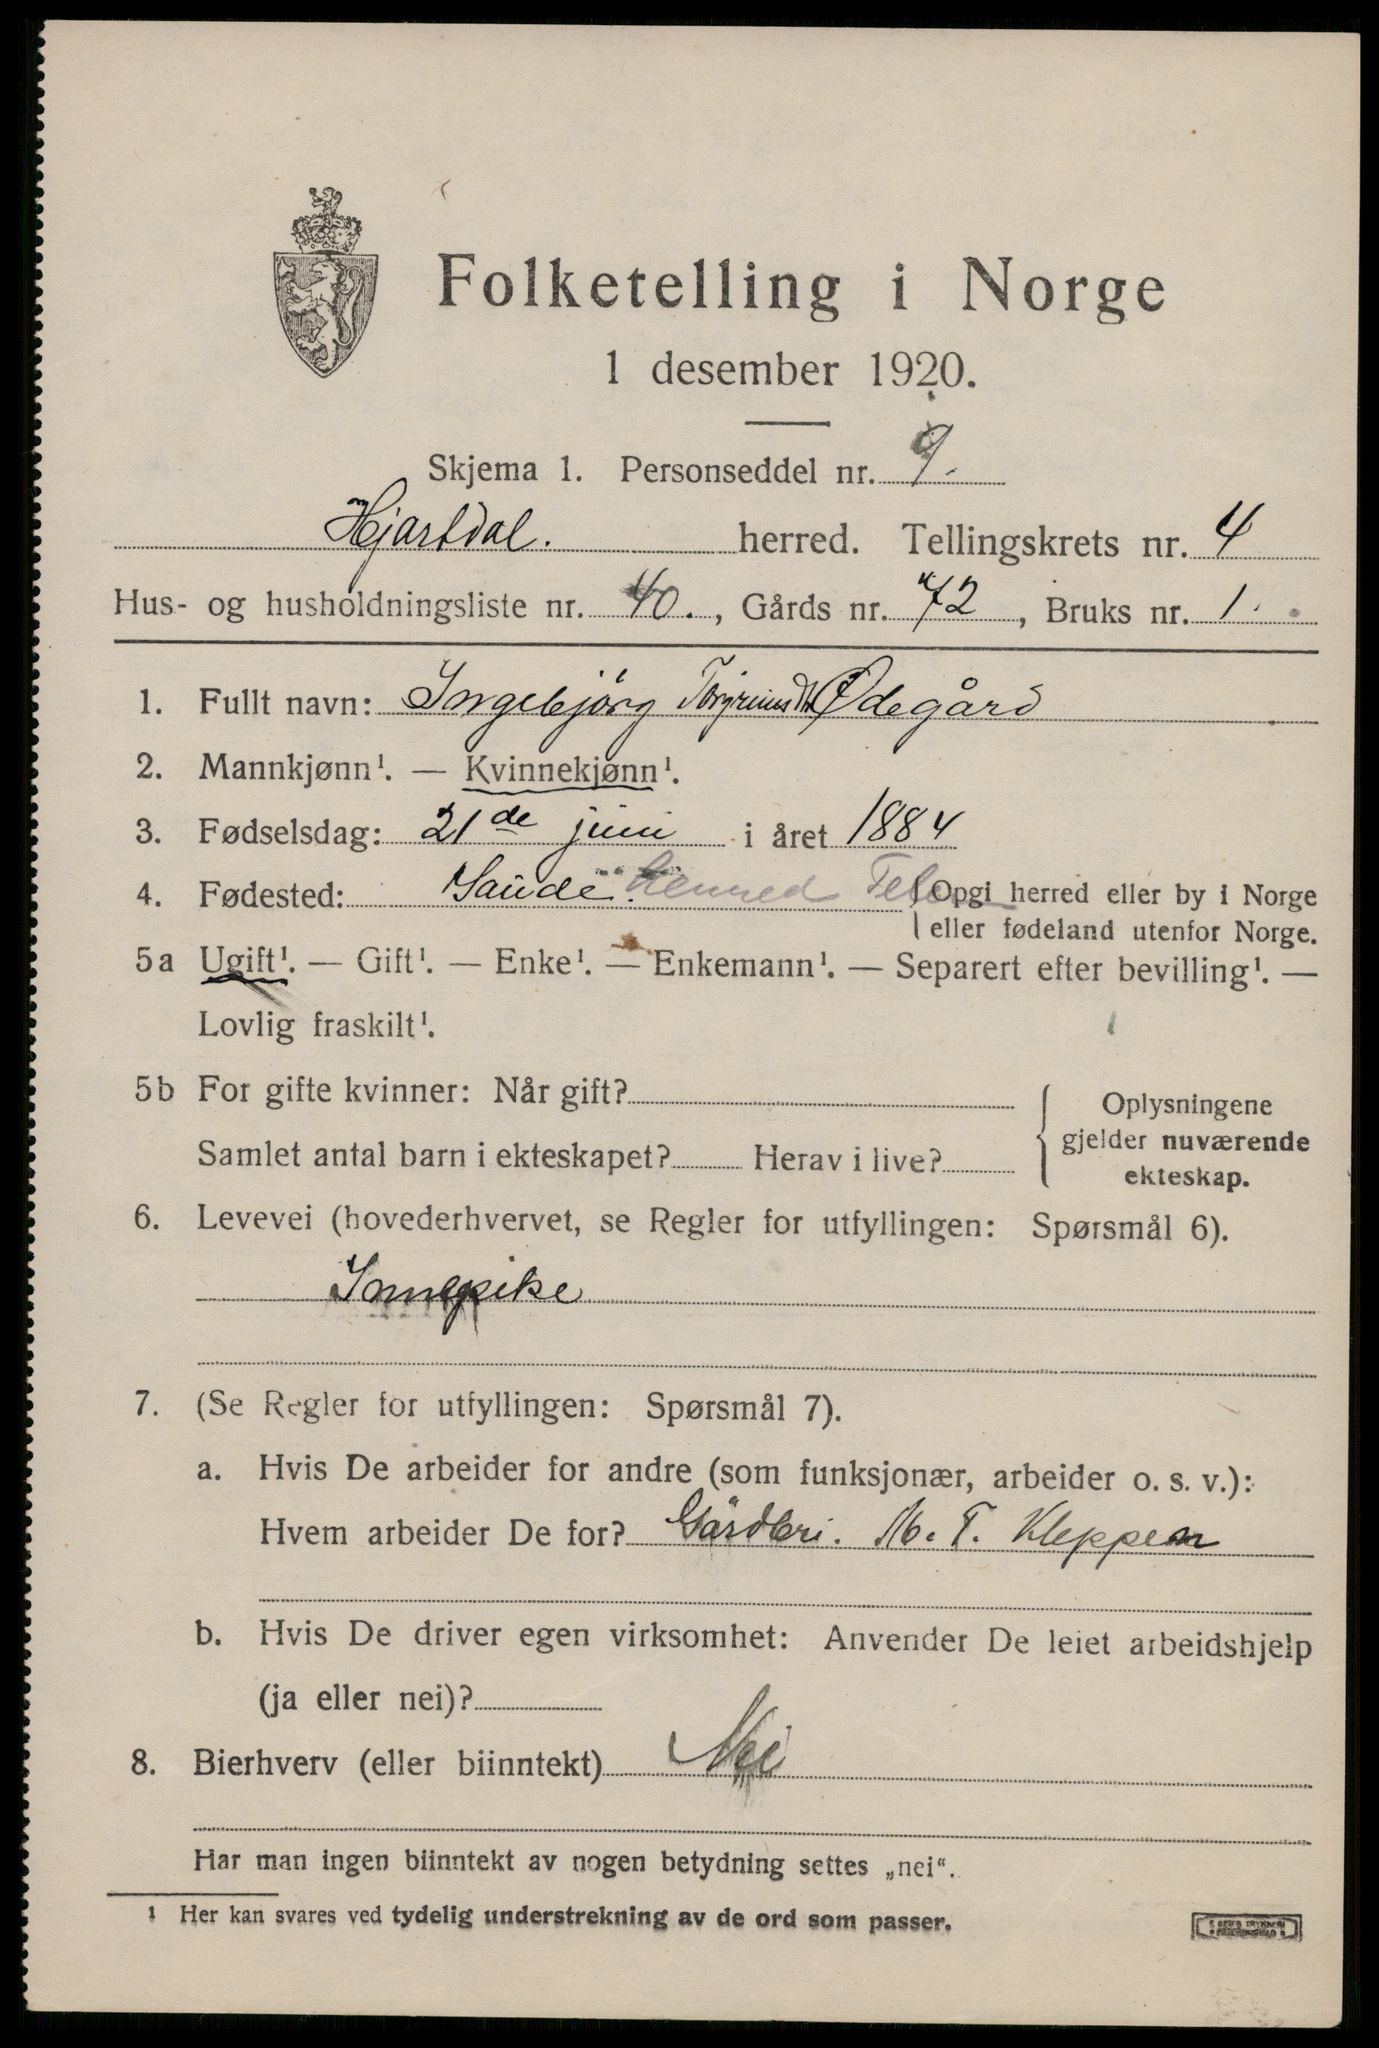 Folketelling i Norge
1 desember 1920.
Skjema 1. Personseddel nr. 9.
Hjartdal. herred. Tellingskrets nr. 4
Hus- og husholdningsliste nr. 40., Gårds nr. 72, Bruks nr. 1.
1. Fullt navn: Ingebjörg Torgrimsdtr Ødegård
2. Mannkjønn¹. — Kvinnekjønn¹.
3. Fødselsdag: 21de juni i året 1884
4. Fødested: Saude. herred Tel. {Opgi herred eller by i Norge
eller fødeland utenfor Norge.
5a Ugift¹. — Gift¹. — Enke¹. — Enkemann¹. — Separert efter bevilling¹. —
Lovlig fraskilt¹.
5b For gifte kvinner: Når gift?
Samlet antal barn i ekteskapet? Herav i live?
Oplysningene
gjelder nuværende
ekteskap.
6. Levevei (hovederhvervet, se Regler for utfyllingen: Spørsmål 6).
Innepike
7. (Se Regler for utfyllingen: Spørsmål 7).
a. Hvis De arbeider for andre (som funksjonær, arbeider o. s. v.):
Hvem arbeider De for? Gårdbr. M. T. Kleppen
b. Hvis De driver egen virksomhet: Anvender De leiet arbeidshjelp
(ja eller nei)?
8. Bierhverv (eller biinntekt) Nei
Har man ingen biinntekt av nogen betydning settes „nei“.
¹ Her kan svares ved tydelig understrekning av de ord som passer.